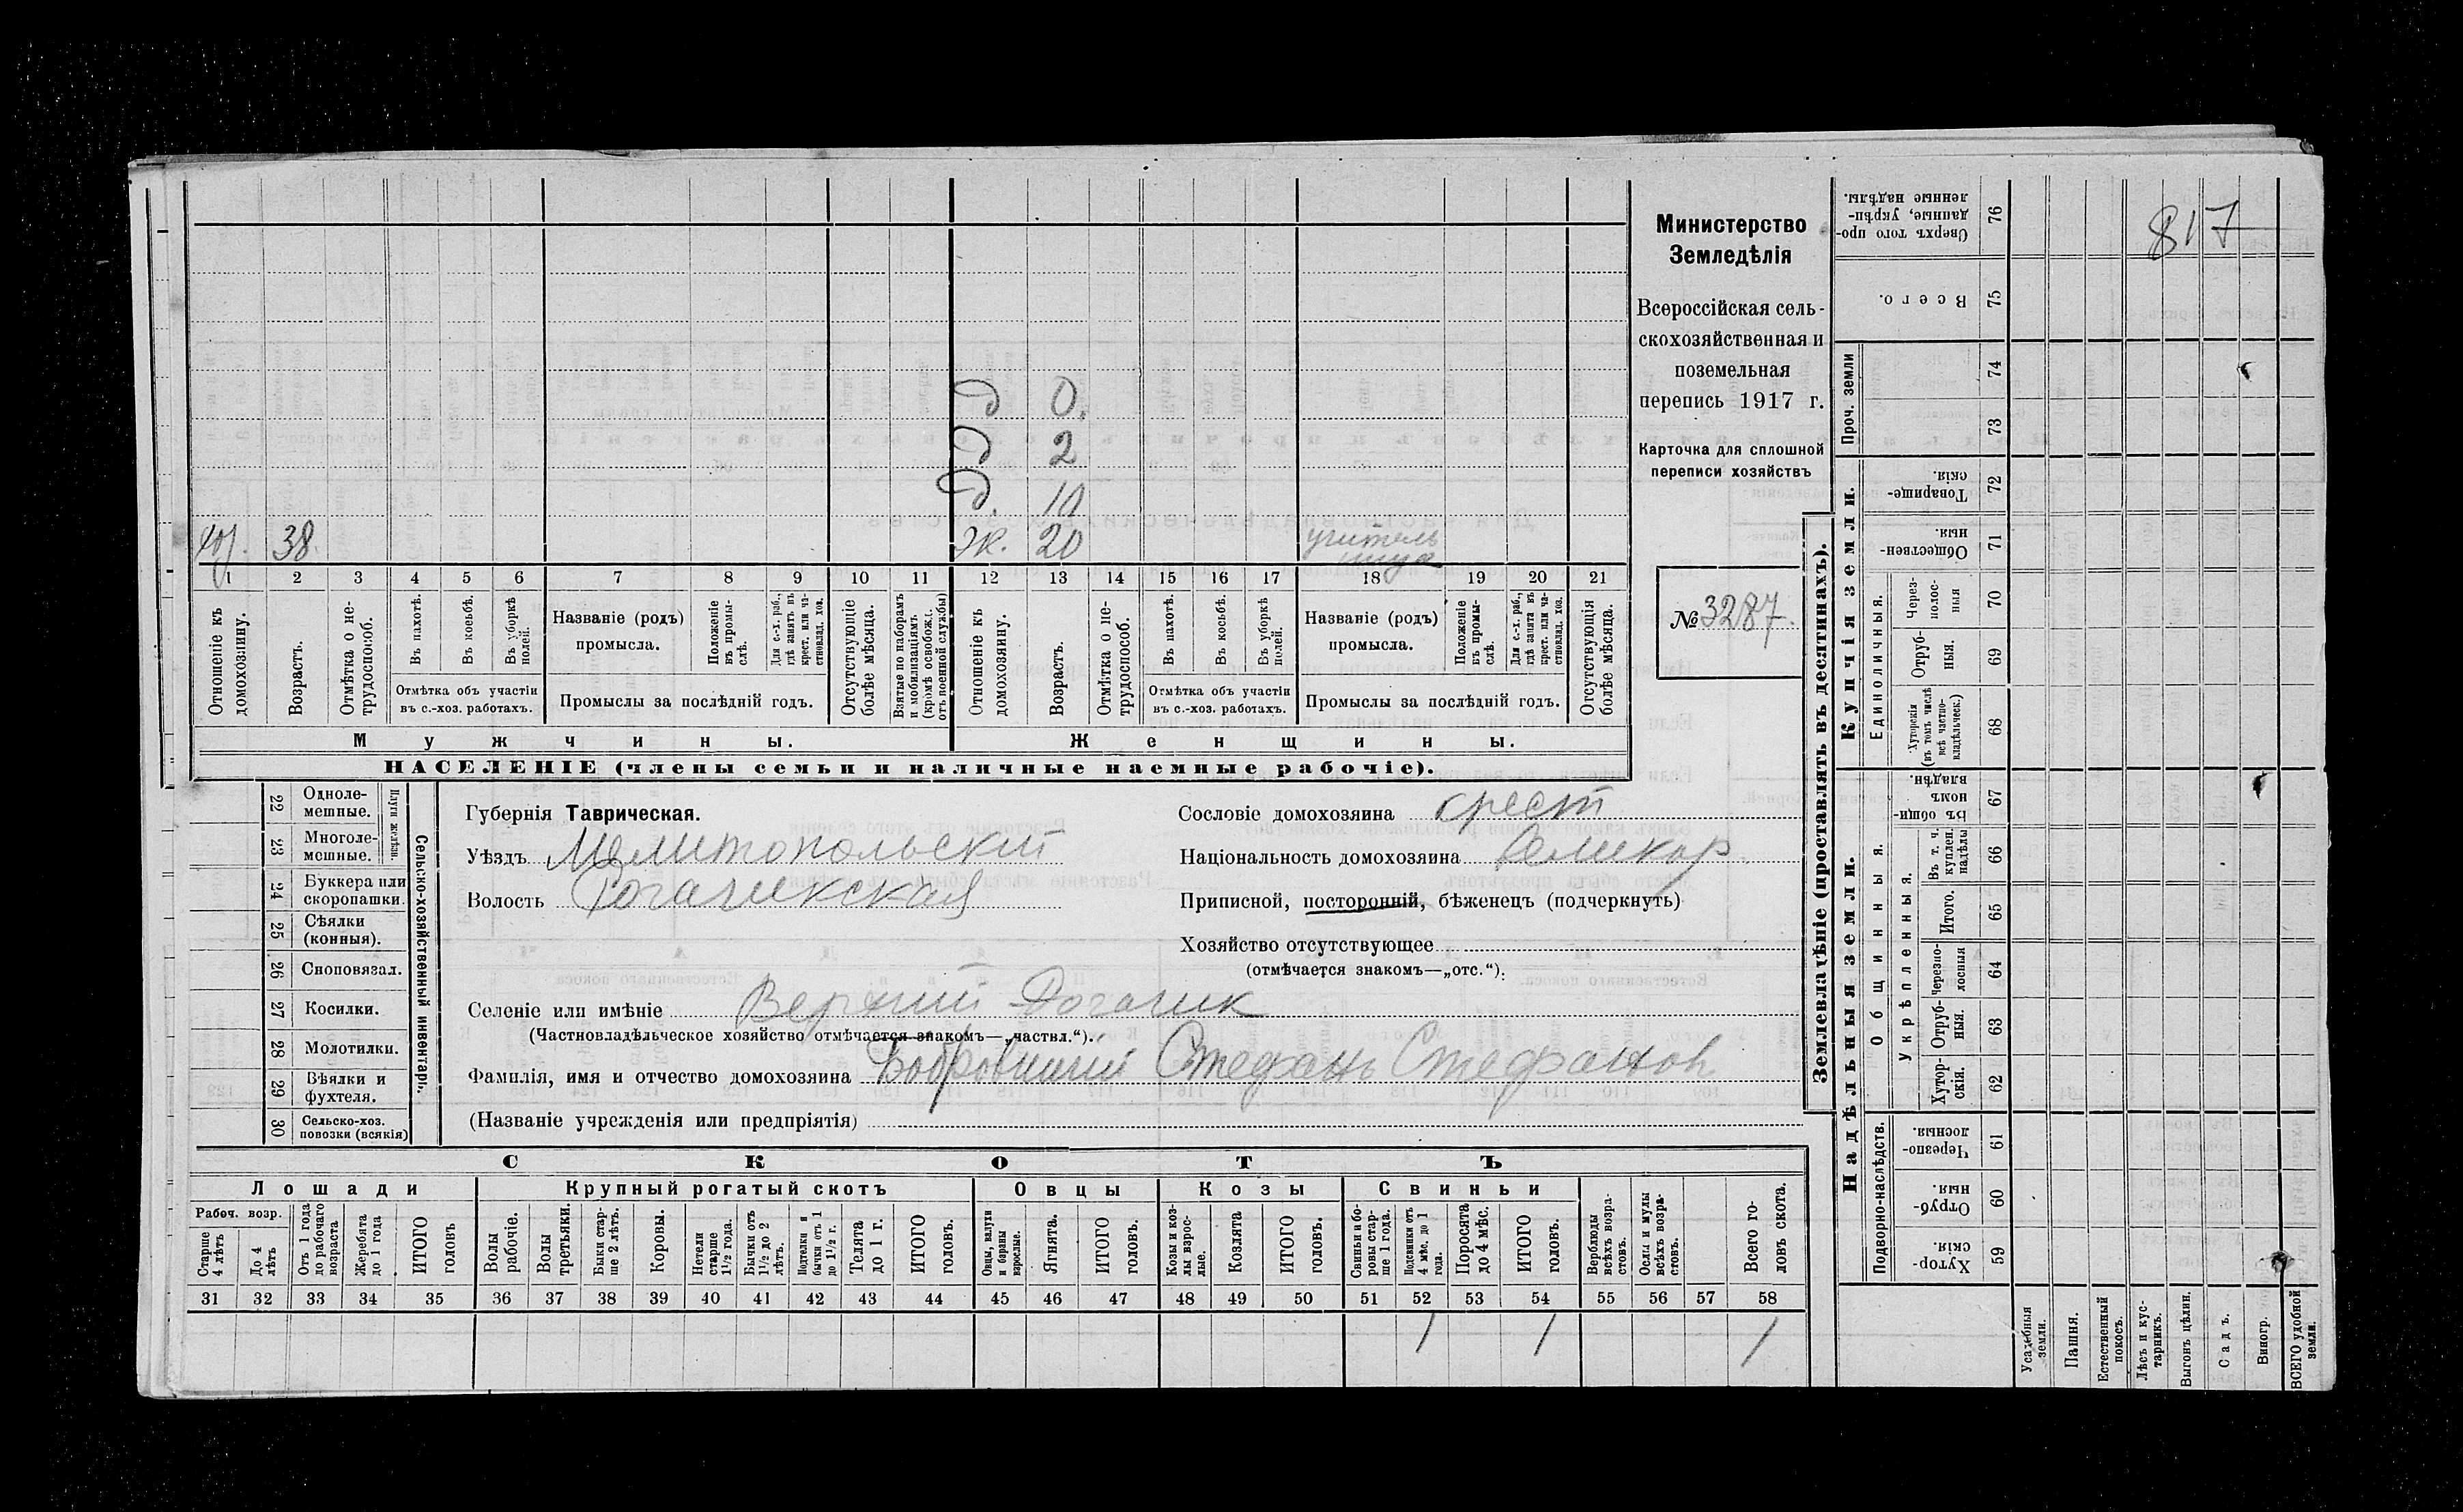 Министерство
Земледѣлія
Всероссійская сель-
скохозяйственная и
поземельная
перепись 1917 г.
Карточка для сплошной
переписи хозяйствъ
№ 3287.
817
д 0.
д 2
д. 10
хоз. 38. эк. 20 учитель
ница
1 2 3 4 5 6 7 8 9 10 11 12 13 14 15 16 17 18 19 20 21
Отношеніе къ домохозяину.
Возрастъ.
Отмѣтка о не-трудоспособ.
Въ пахотѣ.
Въ косьбѣ.
Въ уборкѣ полей.
Отмѣтка объ участіи
въ с.-хоз. работахъ.
Названіе (родъ)
промысла.
Положеніе въ промы-слѣ.
Для с.-х. раб., гдѣ занятъ въ крест. или ча-стновлад. хоз.
Промыслы за послѣдній годъ.
Отсутствующіе болѣе мѣсяца.
Взятые по наборамъ и мобилизаціямъ (кромѣ освобожд. отъ военной службы)
Отношеніе къ домохозяину.
Возрастъ.
Отмѣтка о не-трудоспособ.
Въ пахотѣ.
Въ косьбѣ.
Въ уборкѣ полей.
Отмѣтка объ участіи
въ с.-хоз. работахъ.
Названіе (родъ)
промысла.
Положеніе въ промы-слѣ.
Для с.-х. раб., гдѣ занята въ крест. или ча-стновлад. хоз.
Промыслы за послѣдній годъ.
Отсутствующія болѣе мѣсяца.
Мужчины. Женщины.
НАСЕЛЕНІЕ (члены семьи и наличные наемные рабочіе).
Сельско-хозяйственный инвентарь.
Плуги желѣзн.
22 Одноле-мешные.
23 Многоле-мешные.
24 Буккера или скоропашки.
25 Сѣялки (конныя).
26 Сноповязал.
27 Косилки.
28 Молотилки.
29 Вѣялки и фухтеля.
30 Сельско-хоз. повозки (всякія)
Губернія Таврическая.
Уѣздъ Мелитопольскій
Волость Рогачикская
Сословіе домохозяина крест
Національность домохозяина великор
Приписной, посторонній, бѣженецъ (подчеркнуть)
Хозяйство отсутствующее
(отмѣчается знакомъ—„отс.“).
Селеніе или имѣніе Верхній Рогачик
(Частновладѣльческое хозяйство отмѣчается знакомъ—„частвл.“).
Фамилія, имя и отчество домохозяина Стефанъ Стефанов
(Названіе учрежденія или предпріятія)
СКОТЪ
Лошади Крупный рогатый скотъ Овцы Козы Свиньи
Рабоч. возр.
Старше 4 лѣтъ
До 4 лѣтъ
Отъ 1 года до рабочаго возраста
Жеребята до 1 года
ИТОГО головъ
Волы рабочіе.
Волы третьяки.
Быки стар-ше 2 лѣтъ.
Коровы.
Нетели старше 1½ года.
Бычки отъ 1½ до 2 лѣтъ.
Подтелки и бычки отъ 1 до 1½ г.
Телята до 1 г.
ИТОГО головъ.
Овцы, валухи и бараны взрослые.
Ягнята.
ИТОГО головъ.
Козы и коз-лы взрос-лые.
Козлята
ИТОГО головъ.
Свиньи и бо-ровы стар-ше 1 года.
Подсвинки отъ 4 мѣс. до 1 года.
Поросята до 4 мѣс.
ИТОГО головъ.
Верблюды всѣхъ возра-стовъ.
Ослы и мулы всѣхъ возра-стовъ.
Всего го-ловъ скота.
31 32 33 34 35 36 37 38 39 40 41 42 43 44 45 46 47 48 49 50 51 52 53 54 55 56 57 58
1 1 1
Землевладѣніе (проставлять въ десятинахъ).
Купчія земли.
Надѣльныя земли.
Сверхъ того про-данные, укрѣп-ленные надѣлы. 76
Всего. 75
Проч. земли 74 73
Товарище-скія. 72
Обществен-ныя. 71
Единоличныя.
Через-полос-ныя 70
Отруб-ныя. 69
Хуторскія (въ томъ числѣ всѣ частно-владѣльческ.) 68
Общинныя.
Въ общин-номъ владѣн. 67
Укрѣпленныя.
Въ т. ч. куплен. надѣлы 66
Итого. 65
Черезпо-лосныя 64
Отруб-ныя. 63
Хутор-скія. 62
Подворно-наслѣдств.
Черезпо-лосныя. 61
Отруб-ныя. 60
Хутор-скія 59
Усадебныя земли.
Пашня.
Естественный покосъ.
Лѣсъ и кус-тарникъ.
Выгонъ цѣлин.
Садъ.
Виногр.
ВСЕГО удобной земли.